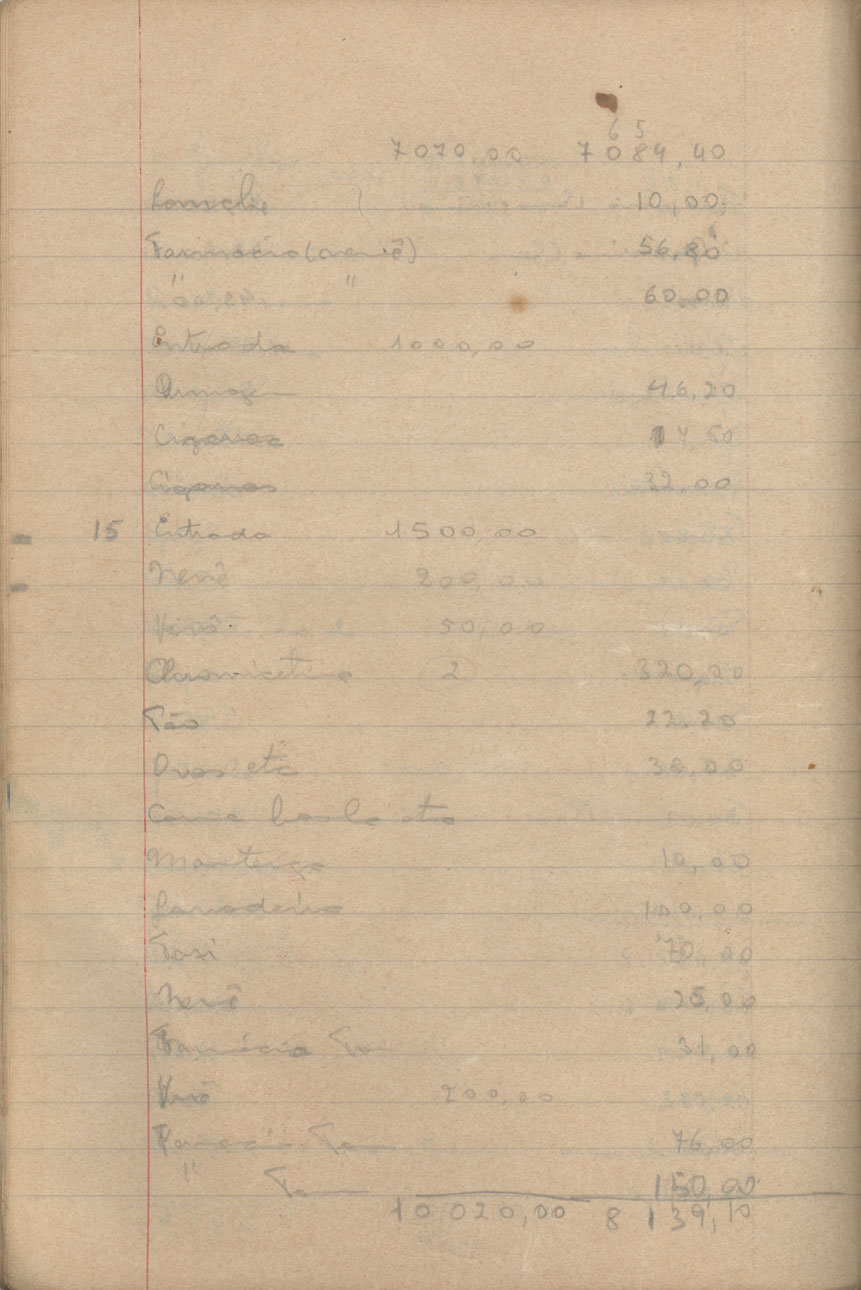 6 5
7070,00 7084,40
Lanche 10,00
Farmácia (nenê) 56,80
" " 60,00
Entrada 1000,00
Armazem 46,20
Cigarros 14,50
Cigarros 32,00
15 Entrada 1500,00
Nenê 200,00
Vovô 50,00
Chloromicetina (2) 320,00
Pão 22.20
Ovos etc 38,00
Carne etc
Manteiga 10,00
Lavadeira 100,00
Taxi 70,00
Nenê 25,00
Farmácia 31,00
200,00
76,00
" 150,00
10020,00 8139,10